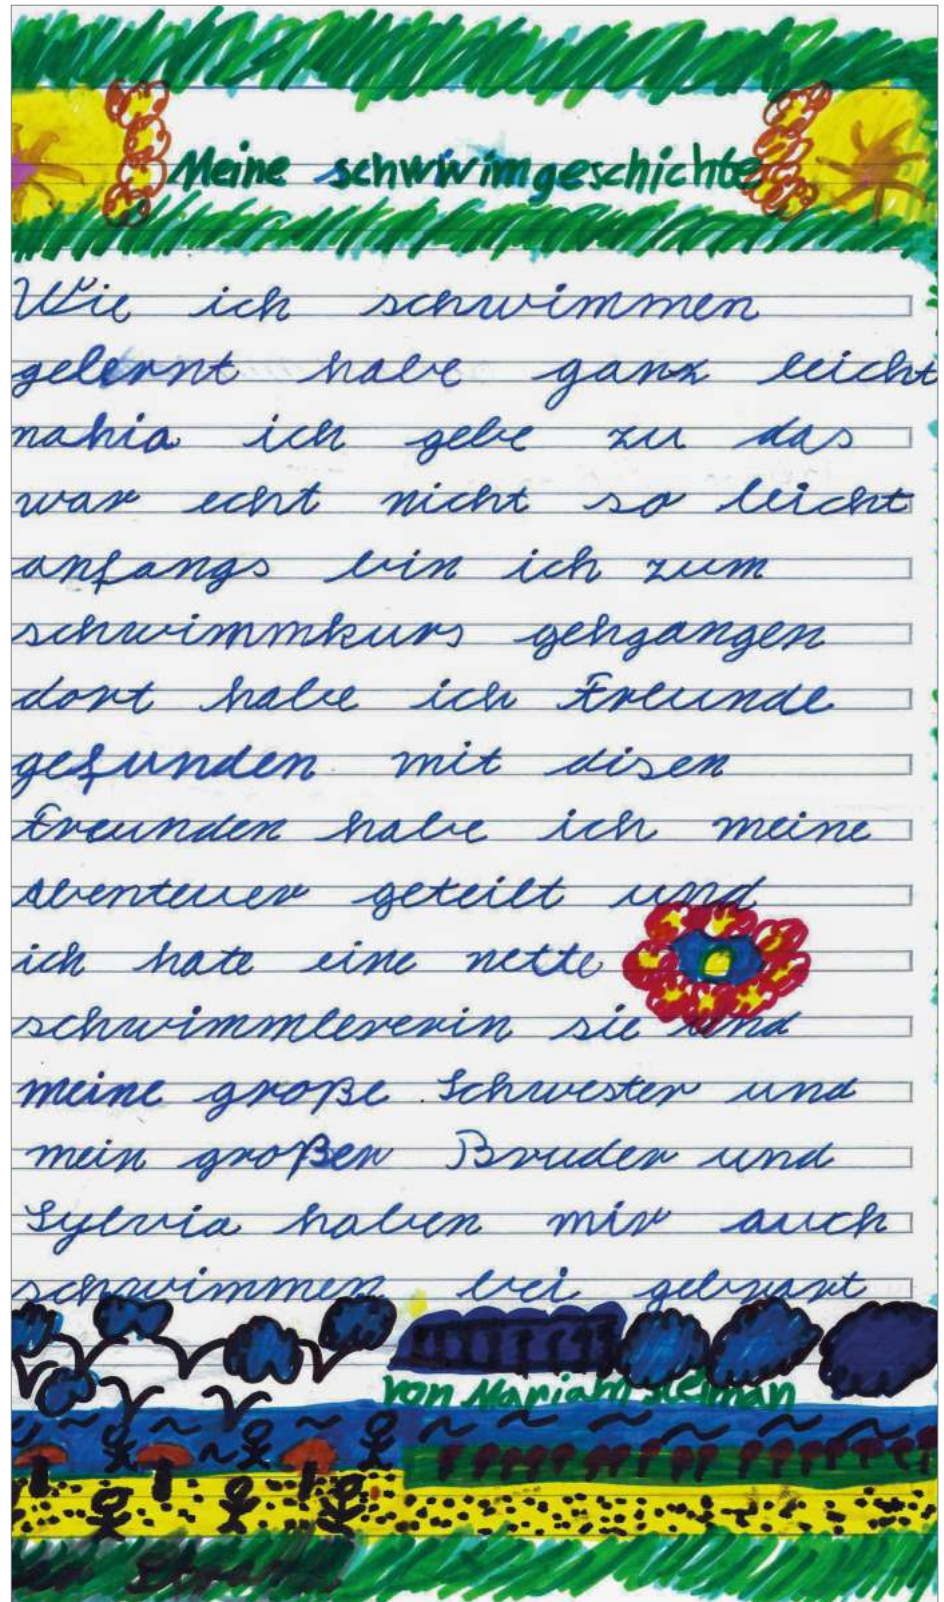 Meine schwwimgeschichte
Wie ich schwimmen
gelernt habe ganz leicht
nahia ich gebe zu das
war echt nicht so leicht
anfangs bin ich zum
schwimmkurs gehgangen
dort habe ich Freunde
gefunden mit disen
Freunden habe ich meine
Abenteuer geteilt und
ich hate eine nette
schwimmlererin sie und
meine große Schwester und
mein großer Bruder und
Sylvia haben mir auch
schwimmen bei gebrart
von Mariam